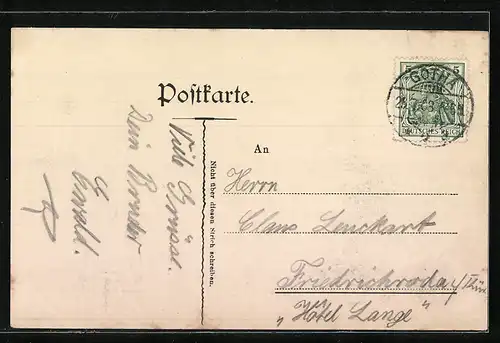 Postkarte.
Viele Grüsse.
Dein Bruder
Ewald.
Nicht über diesen Strich schreiben.
An
Herrn
Claus Lenckart
Friedrichroda i/Thür
„Hôtel Lange"
5 5
GOTHA
DEUTSCHES REICH